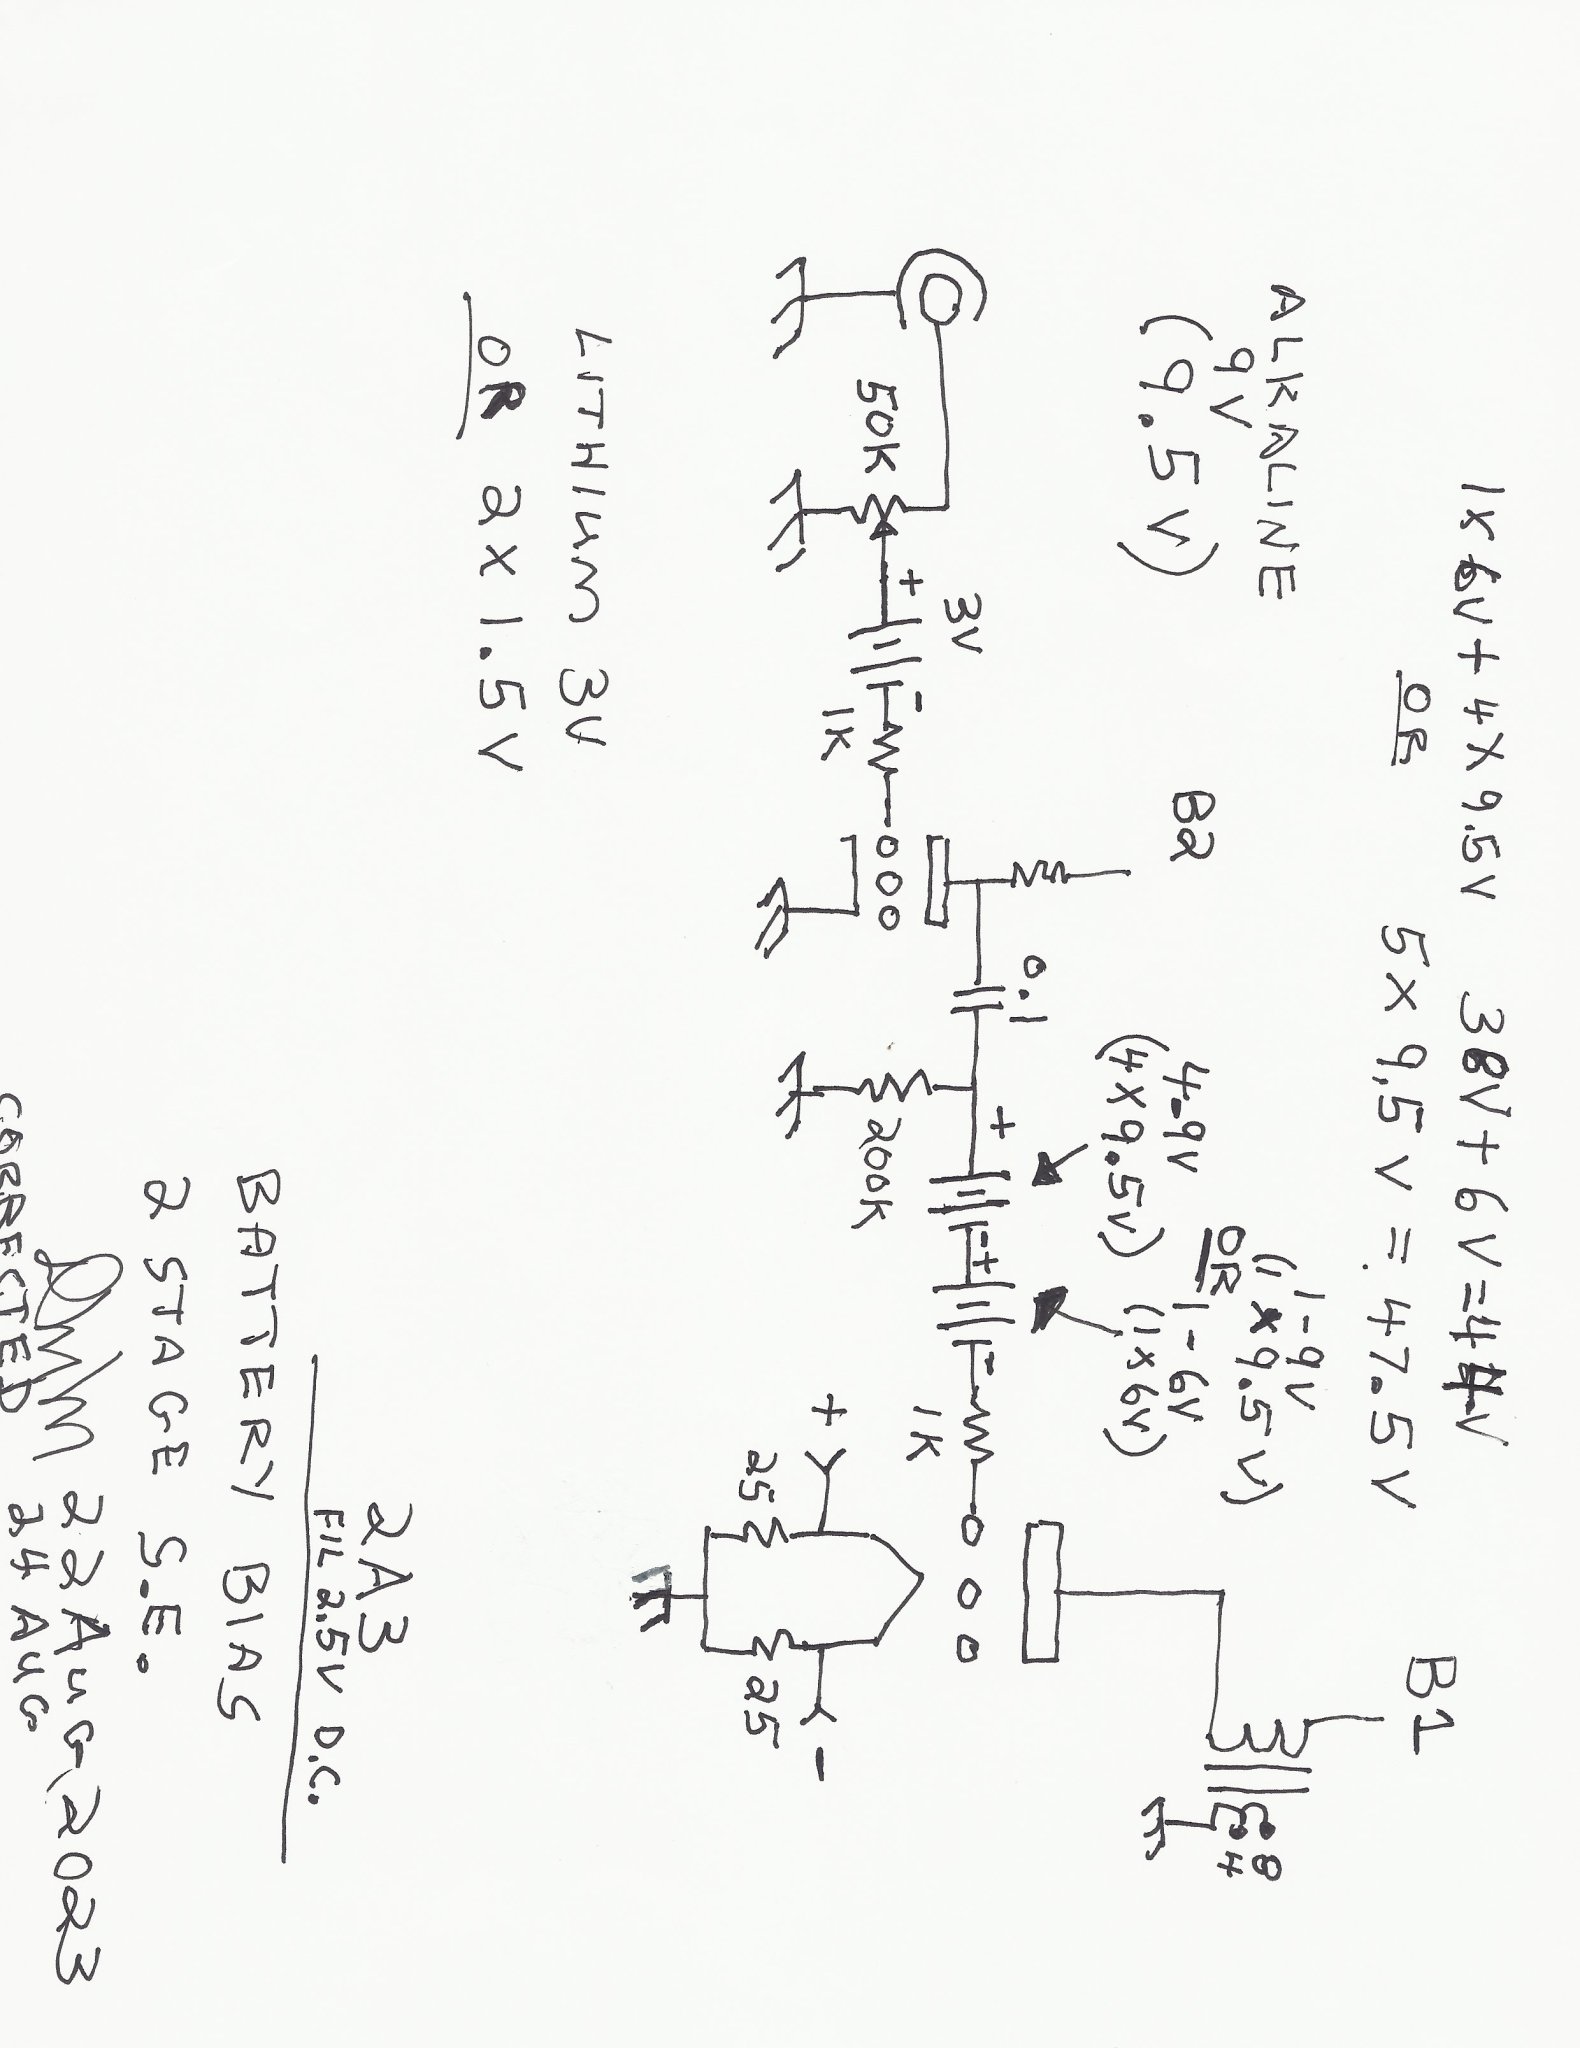 1X 6V + 4X 9.5V 38V + 6V = 44V
OR 5X 9.5V = 47.5V
ALKALINE
9V
(9.5V)
B2
B1
4-9V
(4X9.5V)
1-9V
(1X9.5V)
OR
1-6V
(1X6V)
8
4
3V
+
-
0.1
+
-
+
-
50K
1K
200K
1K
+
-
25
25
LITHIUM 3V
OR 2X1.5V
2A3
FIL 2.5V D.C.
BATTERY BIAS
2 STAGE S.E.
22 AUG 2023
CORRECTED 24 AUG